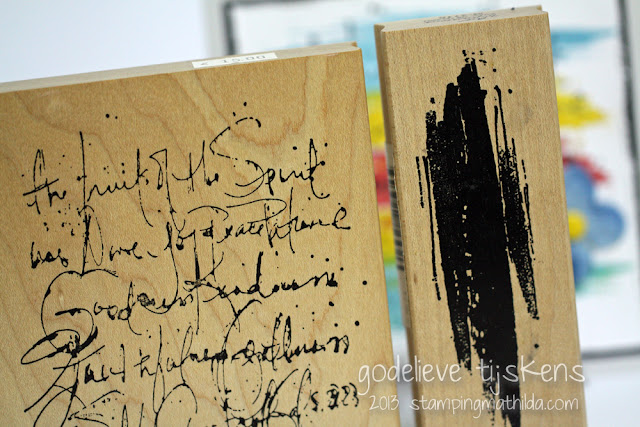 the fruit of the Spirit
was Love Joy Peace Patience
Goodness Kindness
Faithfulness Gentleness
5:22,23
godelieve tijskens
2013 stampingmathilda.com